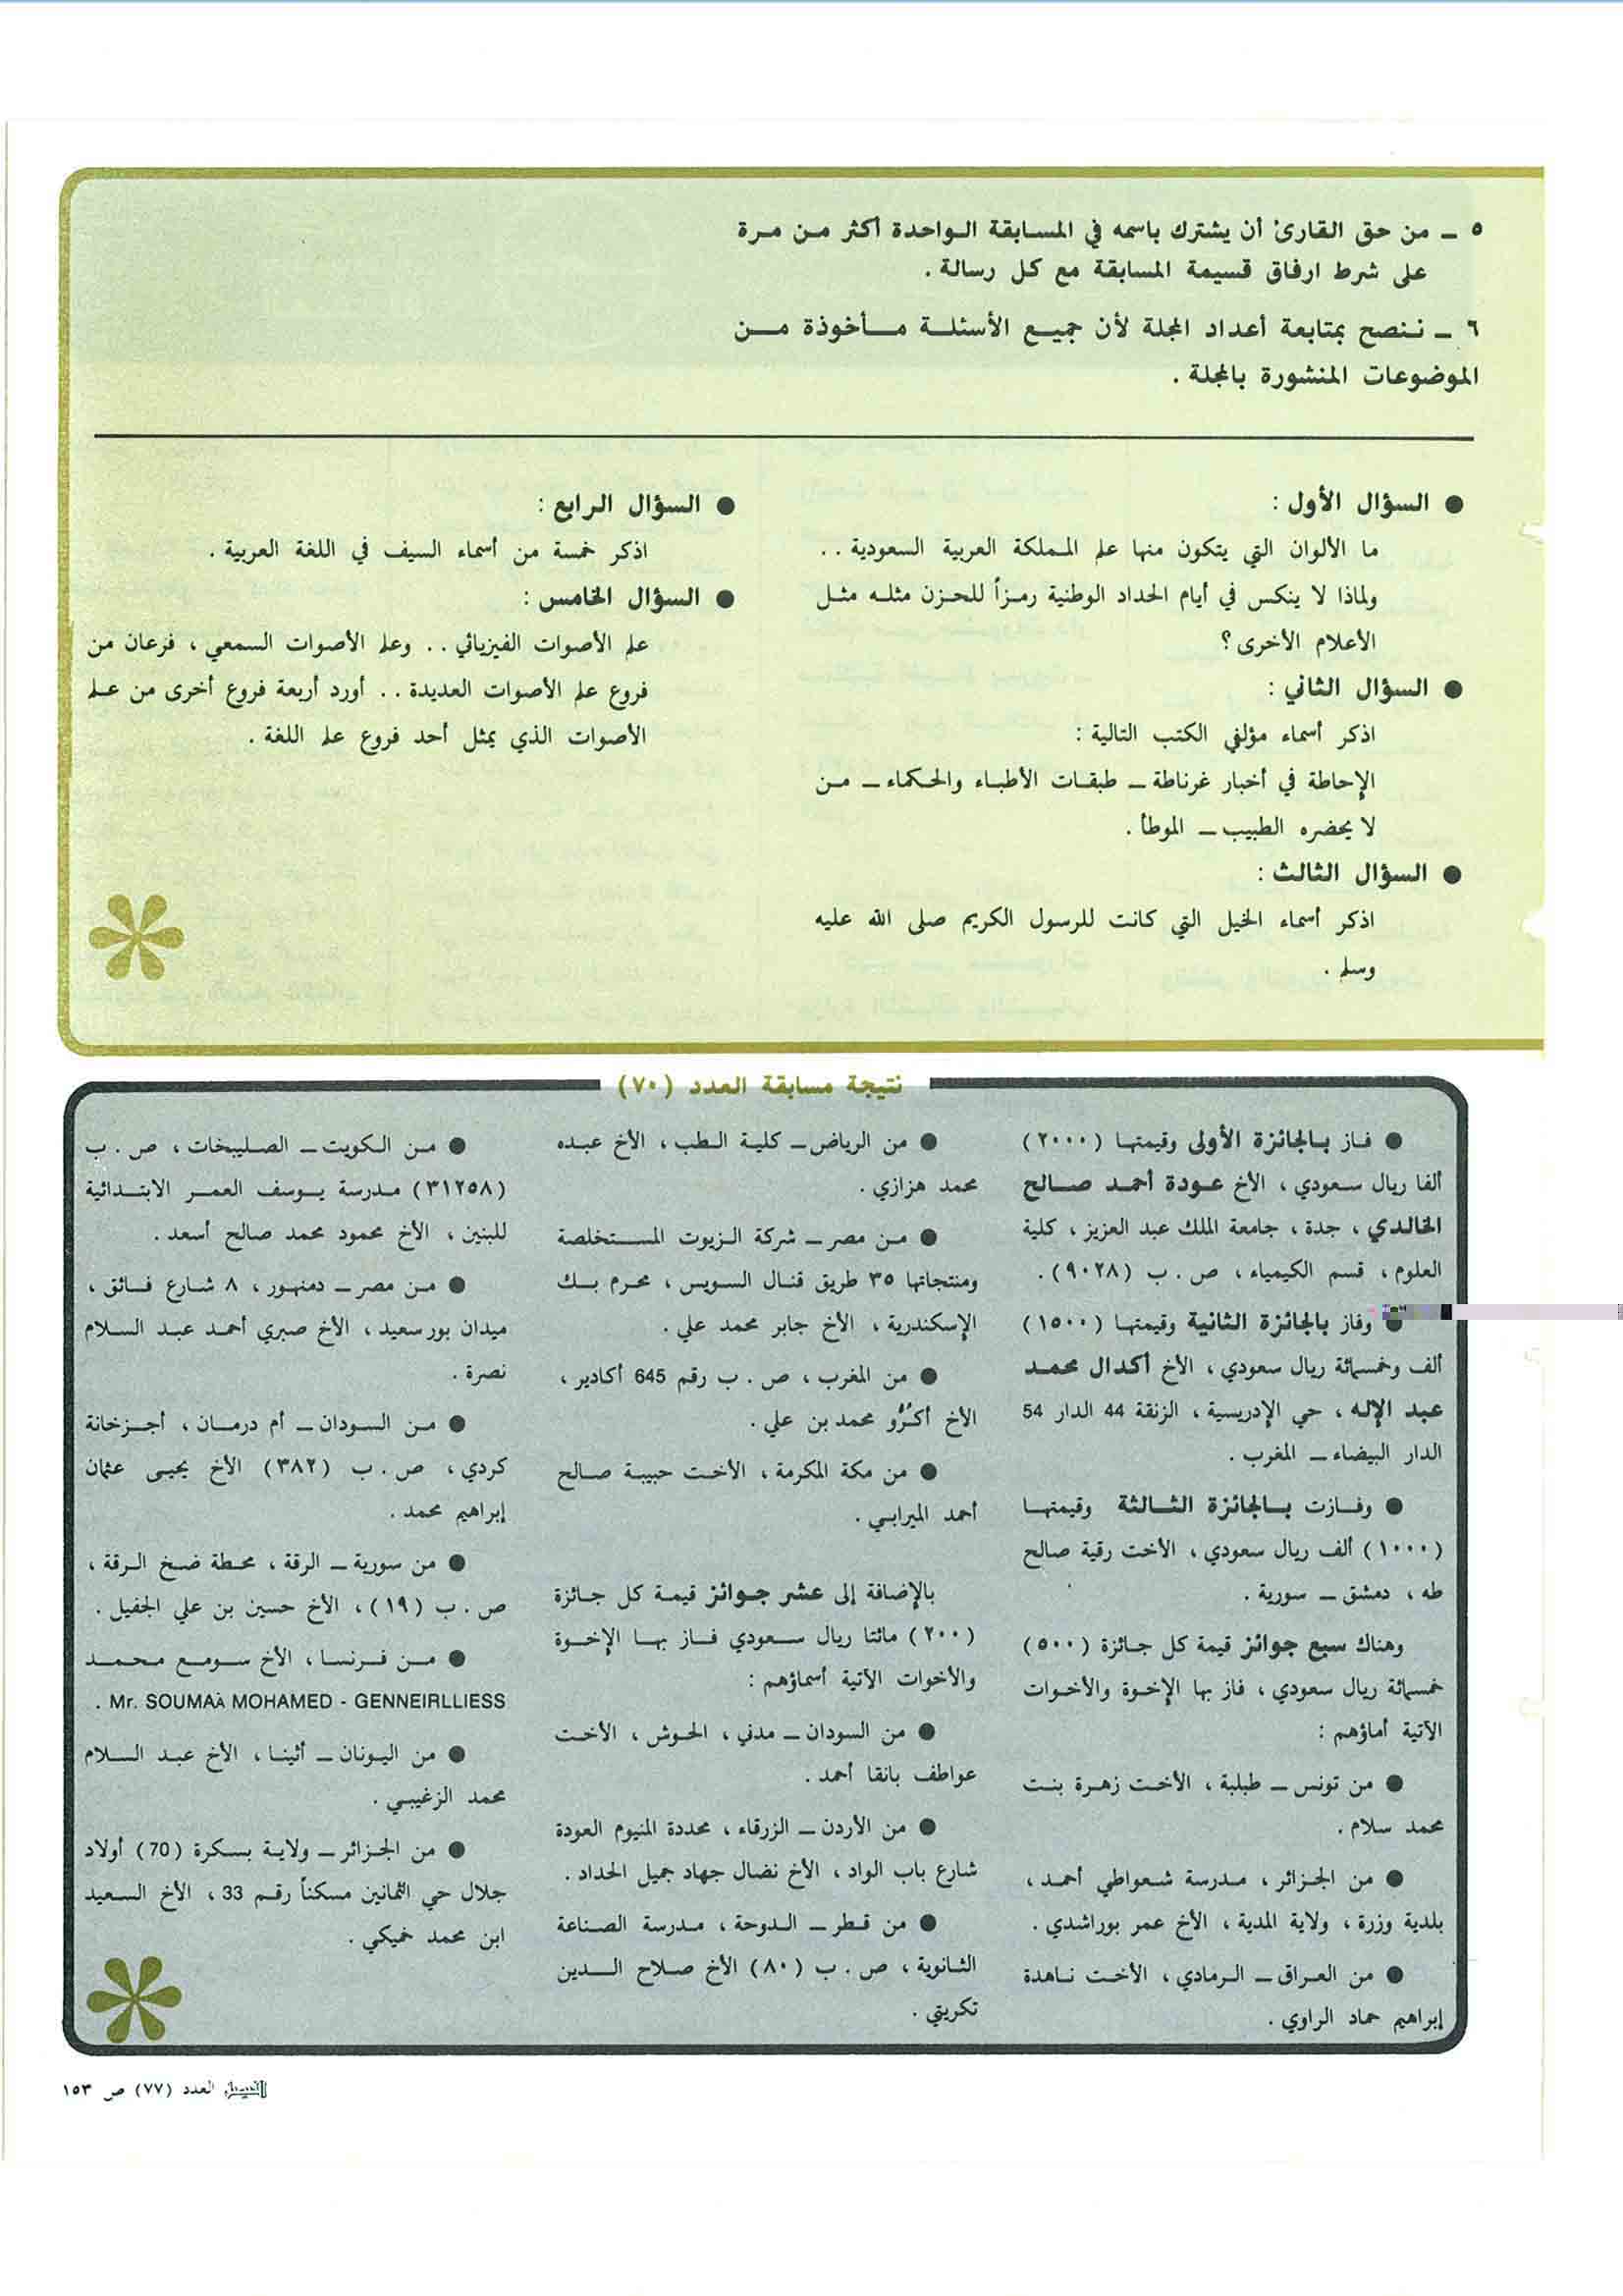 ٥ ــ من حق القارئ أن يشترك باسمه في المسابقة الواحدة أكثر من مرة
على شرط ارفاق قسيمة المسابقة مع كل رسالة .
٦ ــ ننصح بمتابعة أعداد المجلة لأن جميع الأسئلة مأخوذة من
الموضوعات المنشورة بالمجلة .
● السؤال الأول :
ما الألوان التي يتكون منها علم المملكة العربية السعودية . .
ولماذا لا ينكس في أيام الحداد الوطنية رمزاً للحزن مثله مثل
الأعلام الأخرى ؟
● السؤال الثاني :
اذكر أسماء مؤلفي الكتب التالية :
الإحاطة في أخبار غرناطة ــ طبقات الأطباء والحكماء ــ من
لا يحضره الطبيب ــ الموطأ .
● السؤال الثالث :
اذكر أسماء الخيل التي كانت للرسول الكريم صلى الله عليه
وسلم .
● السؤال الرابع :
اذكر خمسة من أسماء السيف في اللغة العربية .
● السؤال الخامس :
علم الأصوات الفيزيائي . . وعلم الأصوات السمعي ، فرعان من
فروع علم الأصوات العديدة . . أورد أربعة فروع أخرى من علم
الأصوات الذي يمثل أحد فروع علم اللغة .
نتيجة مسابقة العدد (٧٠)
● فاز بالجائزة الأولى وقيمتها (٢٠٠٠)
ألفا ريال سعودي ، الأخ عودة أحمد صالح
الخالدي ، جدة ، جامعة الملك عبد العزيز ، كلية
العلوم ، قسم الكيمياء ، ص . ب (٩٠٢٨) .
● وفاز بالجائزة الثانية وقيمتها (١٥٠٠)
ألف وخمسمائة ريال سعودي ، الأخ أكدال محمد
عبد الإله ، حي الإدريسية ، الزنقة 44 الدار 54
الدار البيضاء ــ المغرب .
● وفازت بالجائزة الثالثة وقيمتها
(١٠٠٠) ألف ريال سعودي ، الأخت رقية صالح
طه ، دمشق ــ سورية .
وهناك سبع جوائز قيمة كل جائزة (٥٠٠)
خمسمائة ريال سعودي ، فاز بها الإخوة والأخوات
الآتية أماؤهم :
● من تونس ــ طبلبة ، الأخت زهرة بنت
محمد سلام .
● من الجزائر ، مدرسة شعواطي أحمد ،
بلدية وزرة ، ولاية المدية ، الأخ عمر بوراشدي .
● من العراق ــ الرمادي ، الأخت ناهدة
إبراهيم حماد الراوي .
● من الرياض ــ كلية الطب ، الأخ عبده
محمد هزازي .
● من مصر ــ شركة الزيوت المستخلصة
ومنتجاتها ٣٥ طريق قنال السويس ، محرم بك
الإسكندرية ، الأخ جابر محمد علي .
● من المغرب ، ص . ب رقم 645 أكادير ،
الأخ أكُرُّو محمد بن علي .
● من مكة المكرمة ، الأخت حبيبة صالح
أحمد الميرابي .
بالإضافة إلى عشر جوائز قيمة كل جائزة
(٢٠٠) مائتا ريال سعودي فاز بها الإخوة
والأخوات الآتية أسماؤهم :
● من السودان ــ مدني ، الحوش ، الأخت
عواطف بانقا أحمد .
● من الأردن ــ الزرقاء ، محددة المنيوم العودة
شارع باب الواد ، الأخ نضال جهاد جميل الحداد .
● من قطر ــ الدوحة ، مدرسة الصناعة
الثانوية ، ص . ب (٨٠) الأخ صلاح الدين
تكريتي .
● من الكويت ــ الصليبخات ، ص . ب
(٣١٢٥٨) مدرسة يوسف العمر الابتدائية
للبنين ، الأخ محمود محمد صالح أسعد .
● من مصر ــ دمنهور ، ٨ شارع فائق ،
ميدان بور سعيد ، الأخ صبري أحمد عبد السلام
نصرة .
● من السودان ــ أم درمان ، أجزخانة
كردي ، ص . ب (٣٨٢) الأخ يحيى عثمان
إبراهيم محمد .
● من سورية ــ الرقة ، محطة ضخ الرقة ،
ص . ب (١٩) ، الأخ حسين بن علي الجفيل .
● من فرنسا ، الأخ سومع محمد
Mr. SOUMAà MOHAMED - GENNEIRLLIESS .
● من اليونان ــ أثينا ، الأخ عبد السلام
محمد الزغيبي .
● من الجزائر ــ ولاية بسكرة (70) أولاد
جلال حي الثمانين مسكناً رقم 33 ، الأخ السعيد
ابن محمد خميكي .
الفيصل العدد (٧٧) ص ١٥٣